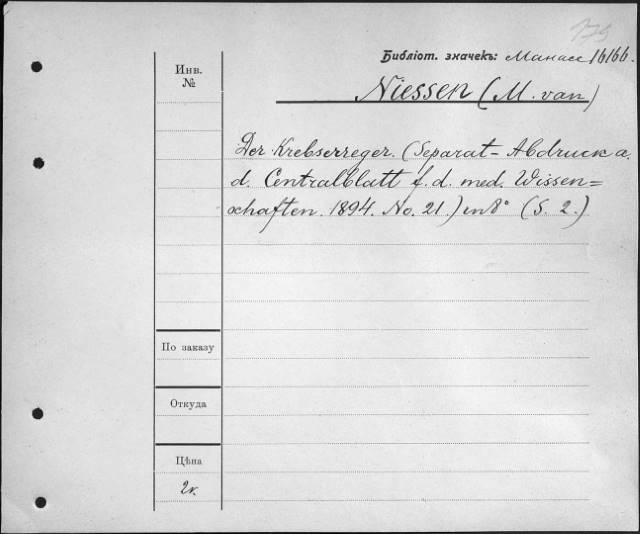 175
Библіот. значекъ: Манасе 16166.
Инв.
№
Niessen (M. van)
Der Krebserreger. (Separat-Abdruck a.
d. Centralblatt f. d. med. Wissen=
schaften. 1894. No. 21.) in 8° (S. 2.)
По заказу
Откуда
Цѣна
2г.